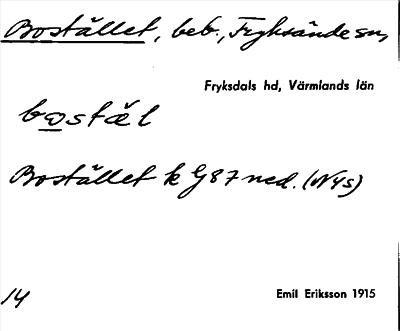 Boställlet, beb., Fryksände sn,
Fryksdals hd, Värmlands län
bostäl
Bostället k G87 ned. (Nys)
14
Emil Eriksson 1915